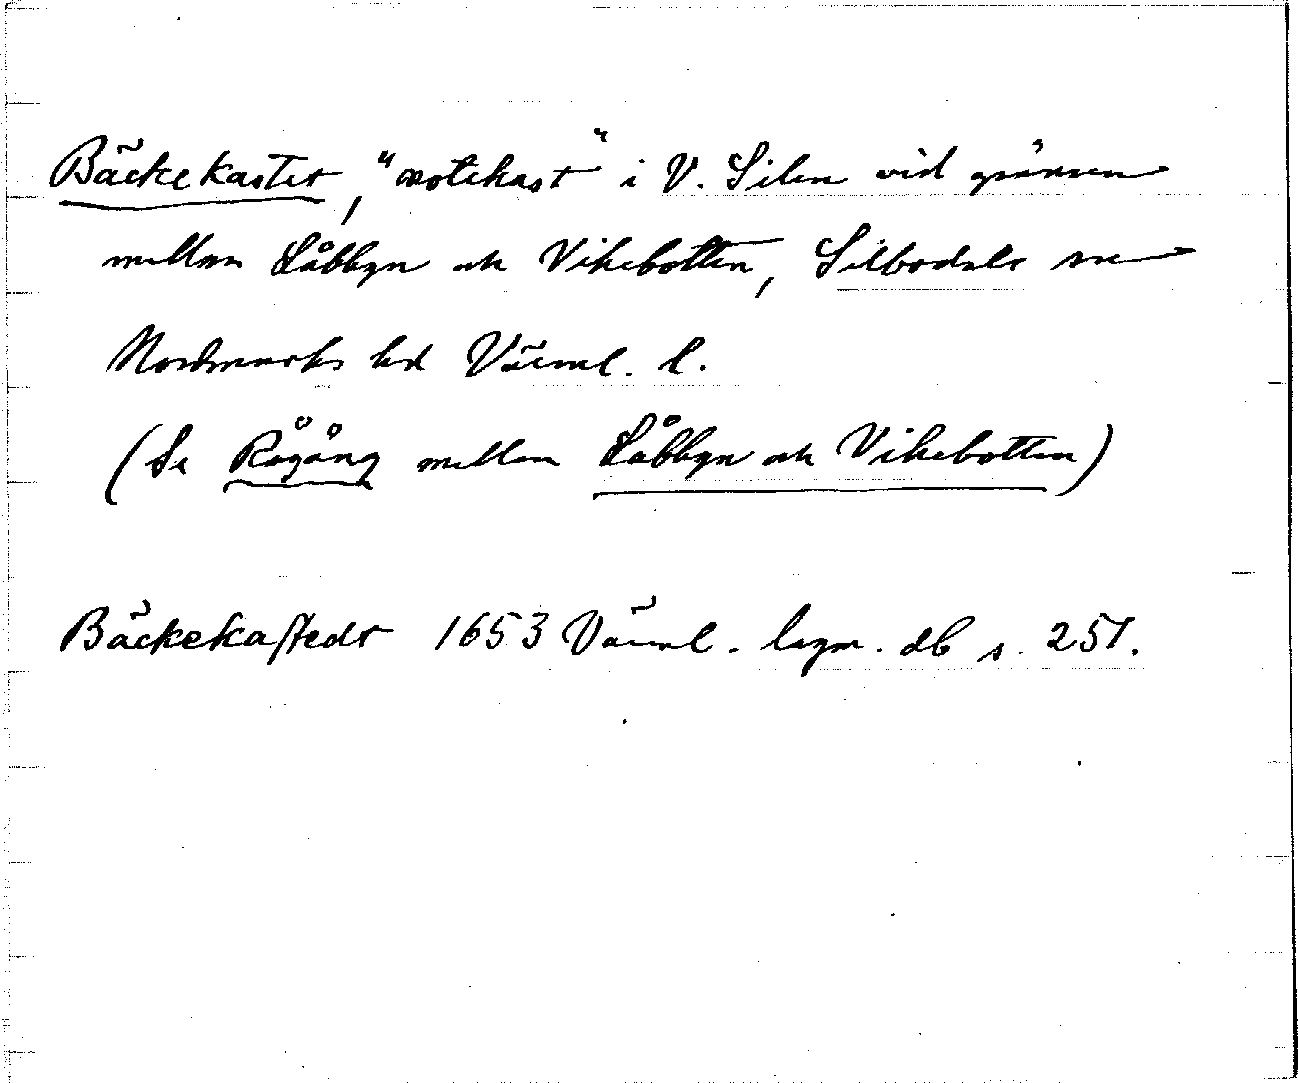 Bäckekastet, "notekast" i V. Silen vid gränsen
mellan Låbbyn och Vikebotten, Silbodals sn
Nordmarks hd Värml. l.
(Se Rågång mellan Låbbyn och Vikebotten)
Bäckekastedt 1653 Värml. lagm. db s. 251.